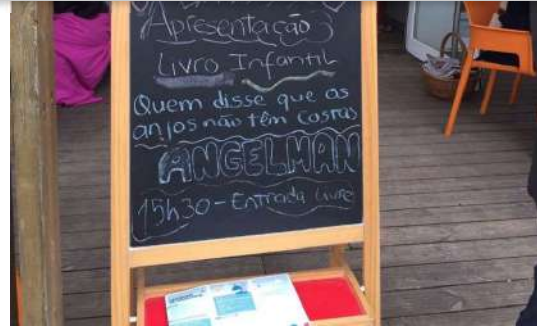 Apresentação
Livro Infantil
Quem disse que os
anjos não têm costas
ANGELMAN
15h30 - Entrada Livre